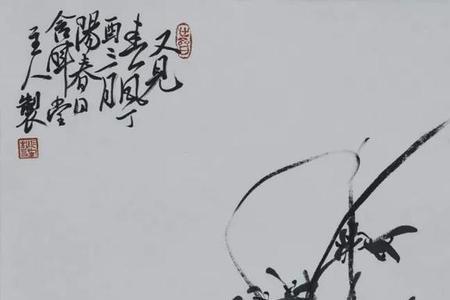 又见
春风丁
酉三月
陽春日
含晖堂
主人製